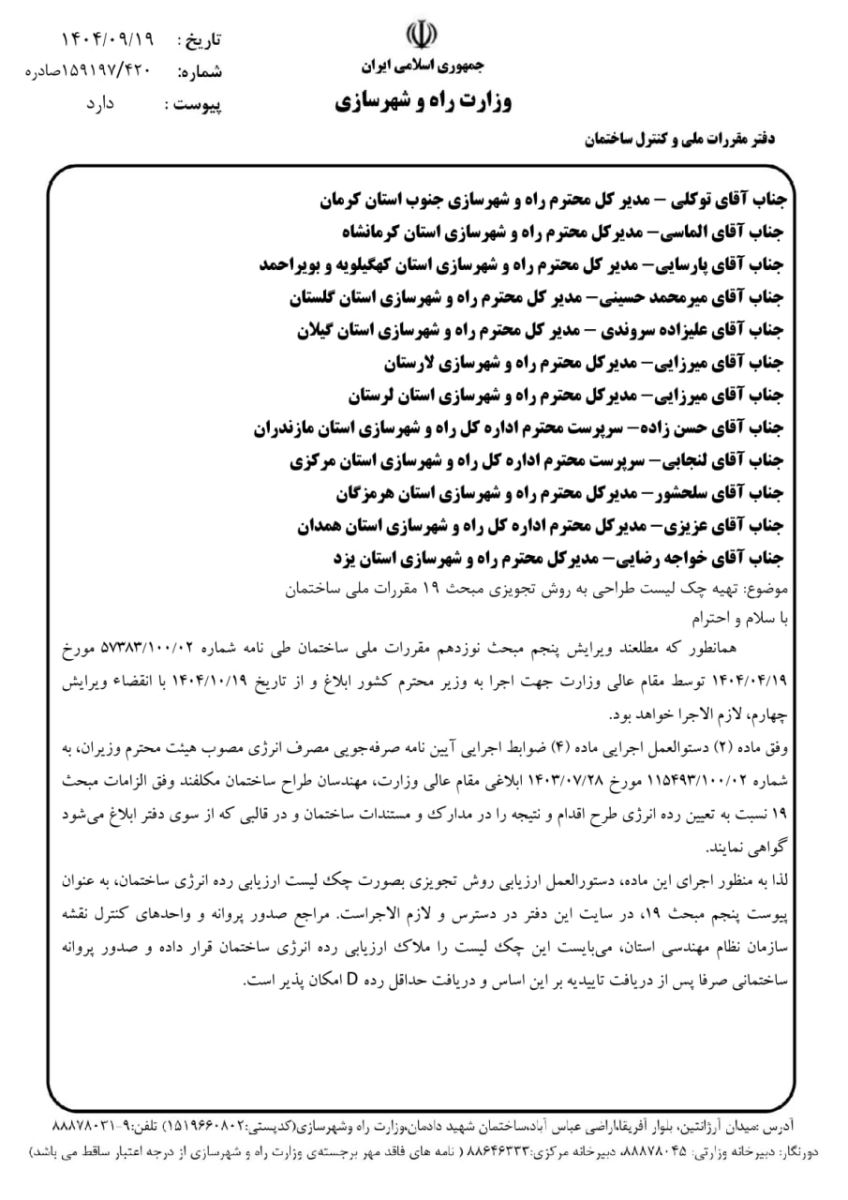 جمهوری اسلامی ایران
وزارت راه و شهرسازی
تاریخ : ۱۴۰۴/۰۹/۱۹
شماره: ۱۵۹۱۹۷/۴۲۰صادره
پیوست : دارد
دفتر مقررات ملی و کنترل ساختمان
جناب آقای توکلی – مدیر کل محترم راه و شهرسازی جنوب استان کرمان
جناب آقای الماسی– مدیرکل محترم راه و شهرسازی استان کرمانشاه
جناب آقای پارسایی– مدیر کل محترم راه و شهرسازی استان کهگیلویه و بویراحمد
جناب آقای میرمحمد حسینی– مدیر کل محترم راه و شهرسازی استان گلستان
جناب آقای علیزاده سروندی – مدیر کل محترم راه و شهرسازی استان گیلان
جناب آقای میرزایی– مدیرکل محترم راه و شهرسازی لارستان
جناب آقای میرزایی– مدیرکل محترم راه و شهرسازی استان لرستان
جناب آقای حسن زاده– سرپرست محترم اداره کل راه و شهرسازی استان مازندران
جناب آقای لنجابی– سرپرست محترم اداره کل راه و شهرسازی استان مرکزی
جناب آقای سلحشور– مدیرکل محترم راه و شهرسازی استان هرمزگان
جناب آقای عزیزی– مدیرکل محترم اداره کل راه و شهرسازی استان همدان
جناب آقای خواجه رضایی– مدیرکل محترم راه و شهرسازی استان یزد
موضوع: تهیه چک لیست طراحی به روش تجویزی مبحث ۱۹ مقررات ملی ساختمان
با سلام و احترام
همانطور که مطلعند ویرایش پنجم مبحث نوزدهم مقررات ملی ساختمان طی نامه شماره ۵۷۳۸۳/۱۰۰/۰۲ مورخ
۱۴۰۴/۰۴/۱۹ توسط مقام عالی وزارت جهت اجرا به وزیر محترم کشور ابلاغ و از تاریخ ۱۴۰۴/۱۰/۱۹ با انقضاء ویرایش
چهارم، لازم الاجرا خواهد بود.
وفق ماده (۲) دستوالعمل اجرایی ماده (۴) ضوابط اجرایی آیین نامه صرفه‌جویی مصرف انرژی مصوب هیئت محترم وزیران، به
شماره ۱۱۵۴۹۳/۱۰۰/۰۲ مورخ ۱۴۰۳/۰۷/۲۸ ابلاغی مقام عالی وزارت، مهندسان طراح ساختمان مکلفند وفق الزامات مبحث
۱۹ نسبت به تعیین رده انرژی طرح اقدام و نتیجه را در مدارک و مستندات ساختمان و در قالبی که از سوی دفتر ابلاغ می‌شود
گواهی نمایند.
لذا به منظور اجرای این ماده، دستورالعمل ارزیابی روش تجویزی بصورت چک لیست ارزیابی رده انرژی ساختمان، به عنوان
پیوست پنجم مبحث ۱۹، در سایت این دفتر در دسترس و لازم الاجراست. مراجع صدور پروانه و واحدهای کنترل نقشه
سازمان نظام مهندسی استان، می‌بایست این چک لیست را ملاک ارزیابی رده انرژی ساختمان قرار داده و صدور پروانه
ساختمانی صرفا پس از دریافت تاییدیه بر این اساس و دریافت حداقل رده D امکان پذیر است.
آدرس :میدان آرژانتین، بلوار آفریقا،اراضی عباس آباد،ساختمان شهید دادمان،وزارت راه وشهرسازی(کدپستی:۱۵۱۹۶۶۰۸۰۲) تلفن:۹-۸۸۸۷۸۰۳۱
دورنگار: دبیرخانه وزارتی: ۸۸۸۷۸۰۴۵، دبیرخانه مرکزی:۸۸۶۴۶۳۳۳ ( نامه های فاقد مهر برجسته‌ی وزارت راه و شهرسازی از درجه اعتبار ساقط می باشد)